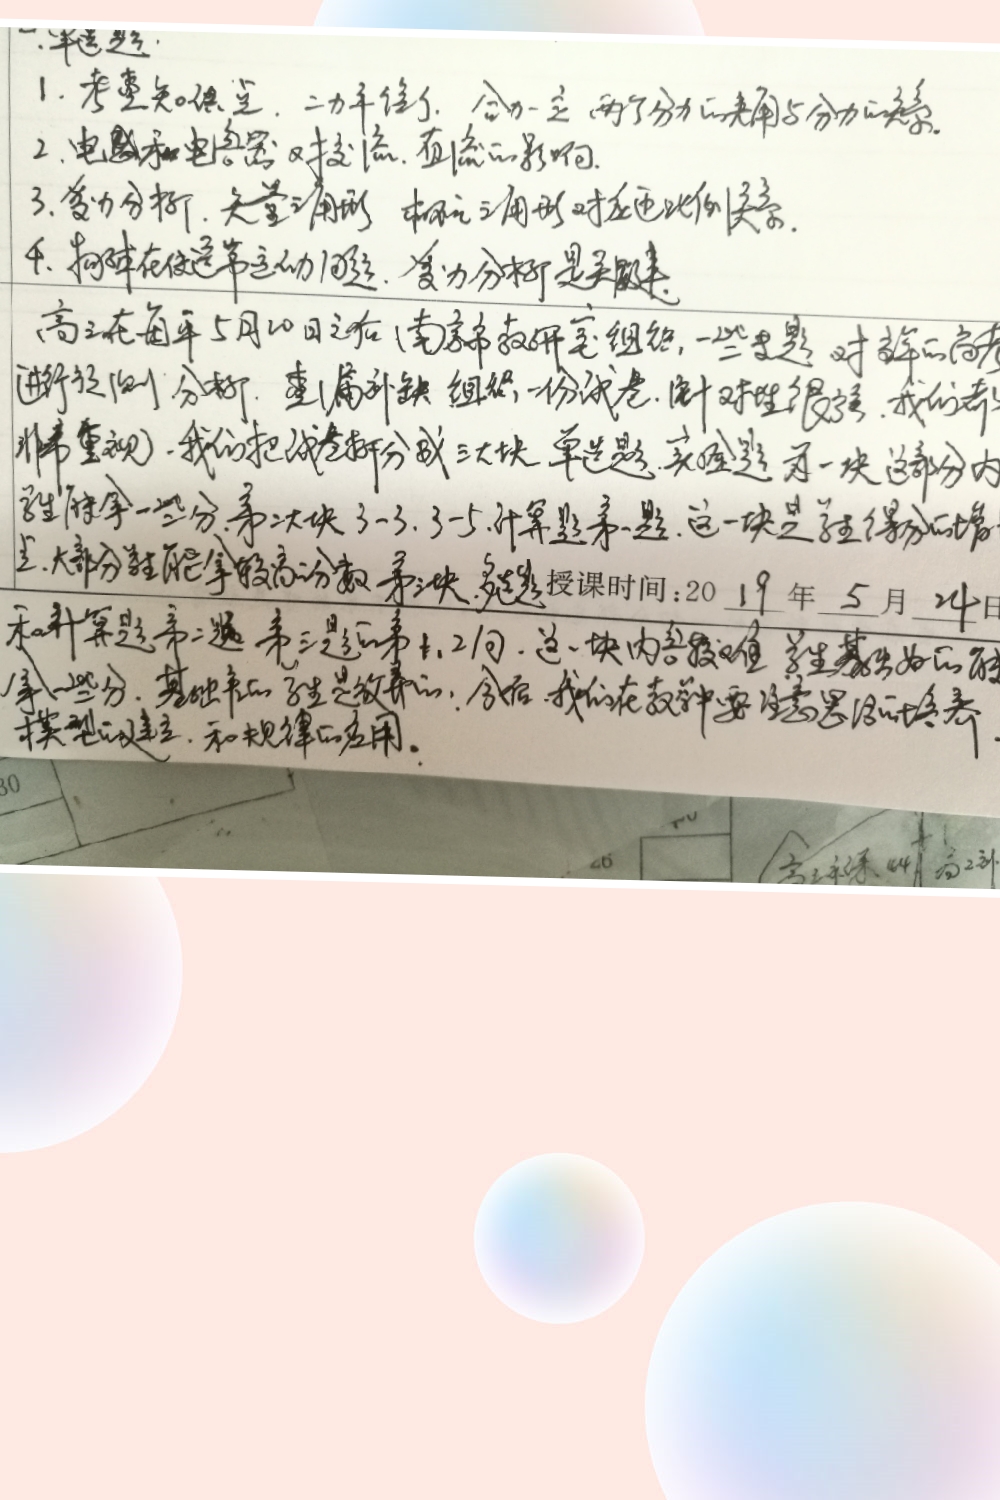 一.单选题.
1. 考查知识点. 二力平衡. 合力一定 两个分力的夹角与分力的关系.
2. 电感和电容器对交流.直流的影响.
3. 受力分析. 矢量三角形 相似三角形对应边比例关系.
4. 物体在传送带运动问题. 受力分析是关键.
高三在每年5月20日之后(南京市教研室组织,一些专题 对高考
进行预测 分析. 查漏补缺 组织一份试卷.针对性很强.我们都
非常重视).我们把试卷拆分成三大块 单选题.实验题为一块 这部分内
学生能拿一些分.第二大块 3-3.3-5.计算题第一题.这一块是学生得分的增
点.大部分学生能拿较高分数 第三块.多选题
授课时间:2019年5月24日
和计算题第二题 第三题的第1.2问.这一块内容较难 学生基础好的能
拿一些分.基础差的学生是放弃的.今后.我们在教学中要注意思路的培养.
模型的建立.和规律的应用.
30
26